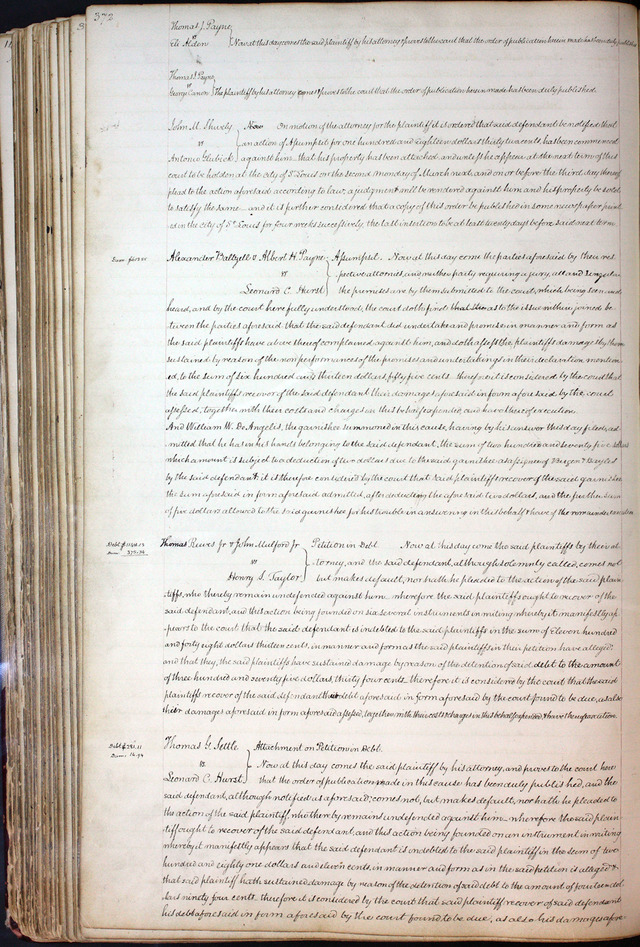 372
Thomas J. Payne
vs
Eli Alden } Now at this day comes the said plaintiff by his attorney & proves to the court that the order of publication herein made has been duly published
Thomas J. Payne
vs
George Canon } The plaintiff by his attorney comes & proves to the court that the order of publication herein made has been duly published.
John M. Shively } Now On motion of the attorney for the plaintiff it is ordered that said defendant be notified that
vs an action of Assumpsit for one hundred and eighteen dollars thirty two cents, has been commenced
Antonio Glubick against him that his property has been attached, and unless he appear at the next term of this
court to be holden at the city of St Louis on the second monday of March next, and on or before the third day thereof
plead to the action aforesaid according to law, a judgment will be rendered against him and his property be sold
to satisfy the same and it is further considered that a copy of this order be published in some newspaper print
ed in the city of St Louis for four weeks successively, the last insertion to be at least twenty days before said next term
Alexander Baltzell & Albert H. Payne } Assumpsit. Now at this day come the parties aforesaid by their res
vs pective attornies, and neither party requiring a jury, all and singular
Leonard C. Hurst the premises are by them submitted to the court, which being seen and
heard, and by the court here fully understood, the court doth find that the as to the issue within joined be
tween the parties aforesaid that the said defendant did undertake and promise in manner and form as
the said plaintiffs have above thereof complained against him, and doth assess the plaintiffs damages by them
sustained by reason of the nonperformances of the promises and undertakings in their declaration mention
ed, to the sum of six hundred and thirteen dollars, fifty five cents. therefore it is considered by the court that
the said plaintiffs recover of the said defendant their damages aforesaid in form aforesaid by the court
assessed, together with their costs and charges in this behalf expended, and have thereof execution.
And William W. DeAngelis, the garnishee summoned in this cause, having by his answer this day filed, ad
mitted that he has in his hands belonging to the said defendant, the sum of two hundred and seventy five dollars
which amount is subject to a deduction of two dollars due to the said garnishee as assignee of
by the said defendant. it is therefore considered by the court that said plaintiffs recover of the said garnishee
the sum aforesaid in form aforesaid admitted, after deducting the aforesaid two dollars, and the further sum
of five dollars allowed to the said garnishee for his trouble in answering in this behalf & have of the remainder execution
Debt $1148.13
Dam 375.34
Thomas Reeves Jr & John Mulford Jr } Petition in Debt Now at this day come the said plaintiffs by their at
vs torney, and the said defendant, although solemnly called, comes not
Henry S. Taylor but makes default, nor hath he pleaded to the action of the said plain
tiffs, who thereby remain undefended against him. wherefore the said plaintiffs ought to recover of the
said defendant, and this action being founded on six several instruments in writing whereby it manifestly ap
pears to the court that the said defendant is indebted to the said plaintiffs in the sum of eleven hundred
and forty eight dollars thirteen cents, in manner and form as the said plaintiffs in their petition have alleged:
and that they, the said plaintiffs have sustained damage by reason of the detention of said debt to the amount
of three hundred and seventy five dollars, thirty four cents. therefore it is considered by the court that the said
plaintiffs recover of the said defendant their debt aforesaid in form aforesaid by the court found to be due, as also
their damages aforesaid in form aforesaid assessed, together with their costs & charges in this behalf expended & have thereof execution.
Debt $281.11
Dam 14.94
Thomas G. Settle } Attachment on Petition in Debt.
vs Now at this day comes the said plaintiff by his attorney, and proves to the court here
Leonard C. Hurst that the order of publication made in this cause has been duly published, and the
said defendant, although notified as aforesaid; comes not, but makes default, nor hath he pleaded to
the action of the said plaintiff, who thereby remains undefended against him. wherefore the said plain
tiff ought to recover of the said defendant, and this action being founded on an instrument in writing
whereby it manifestly appears that the said defendant is indebted to the said plaintiff in the sum of two
hundred and eighty one dollars and eleven cents, in manner and form as in the said petition is alleged &
that said plaintiff hath sustained damage by reason of the detention of said debt to the amount of fourteen dol
lars ninety four cents. therefore it is considered by the court that said plaintiff recover of said defendant
his debt aforesaid in form aforesaid by the court found to be due, as also his damages afore